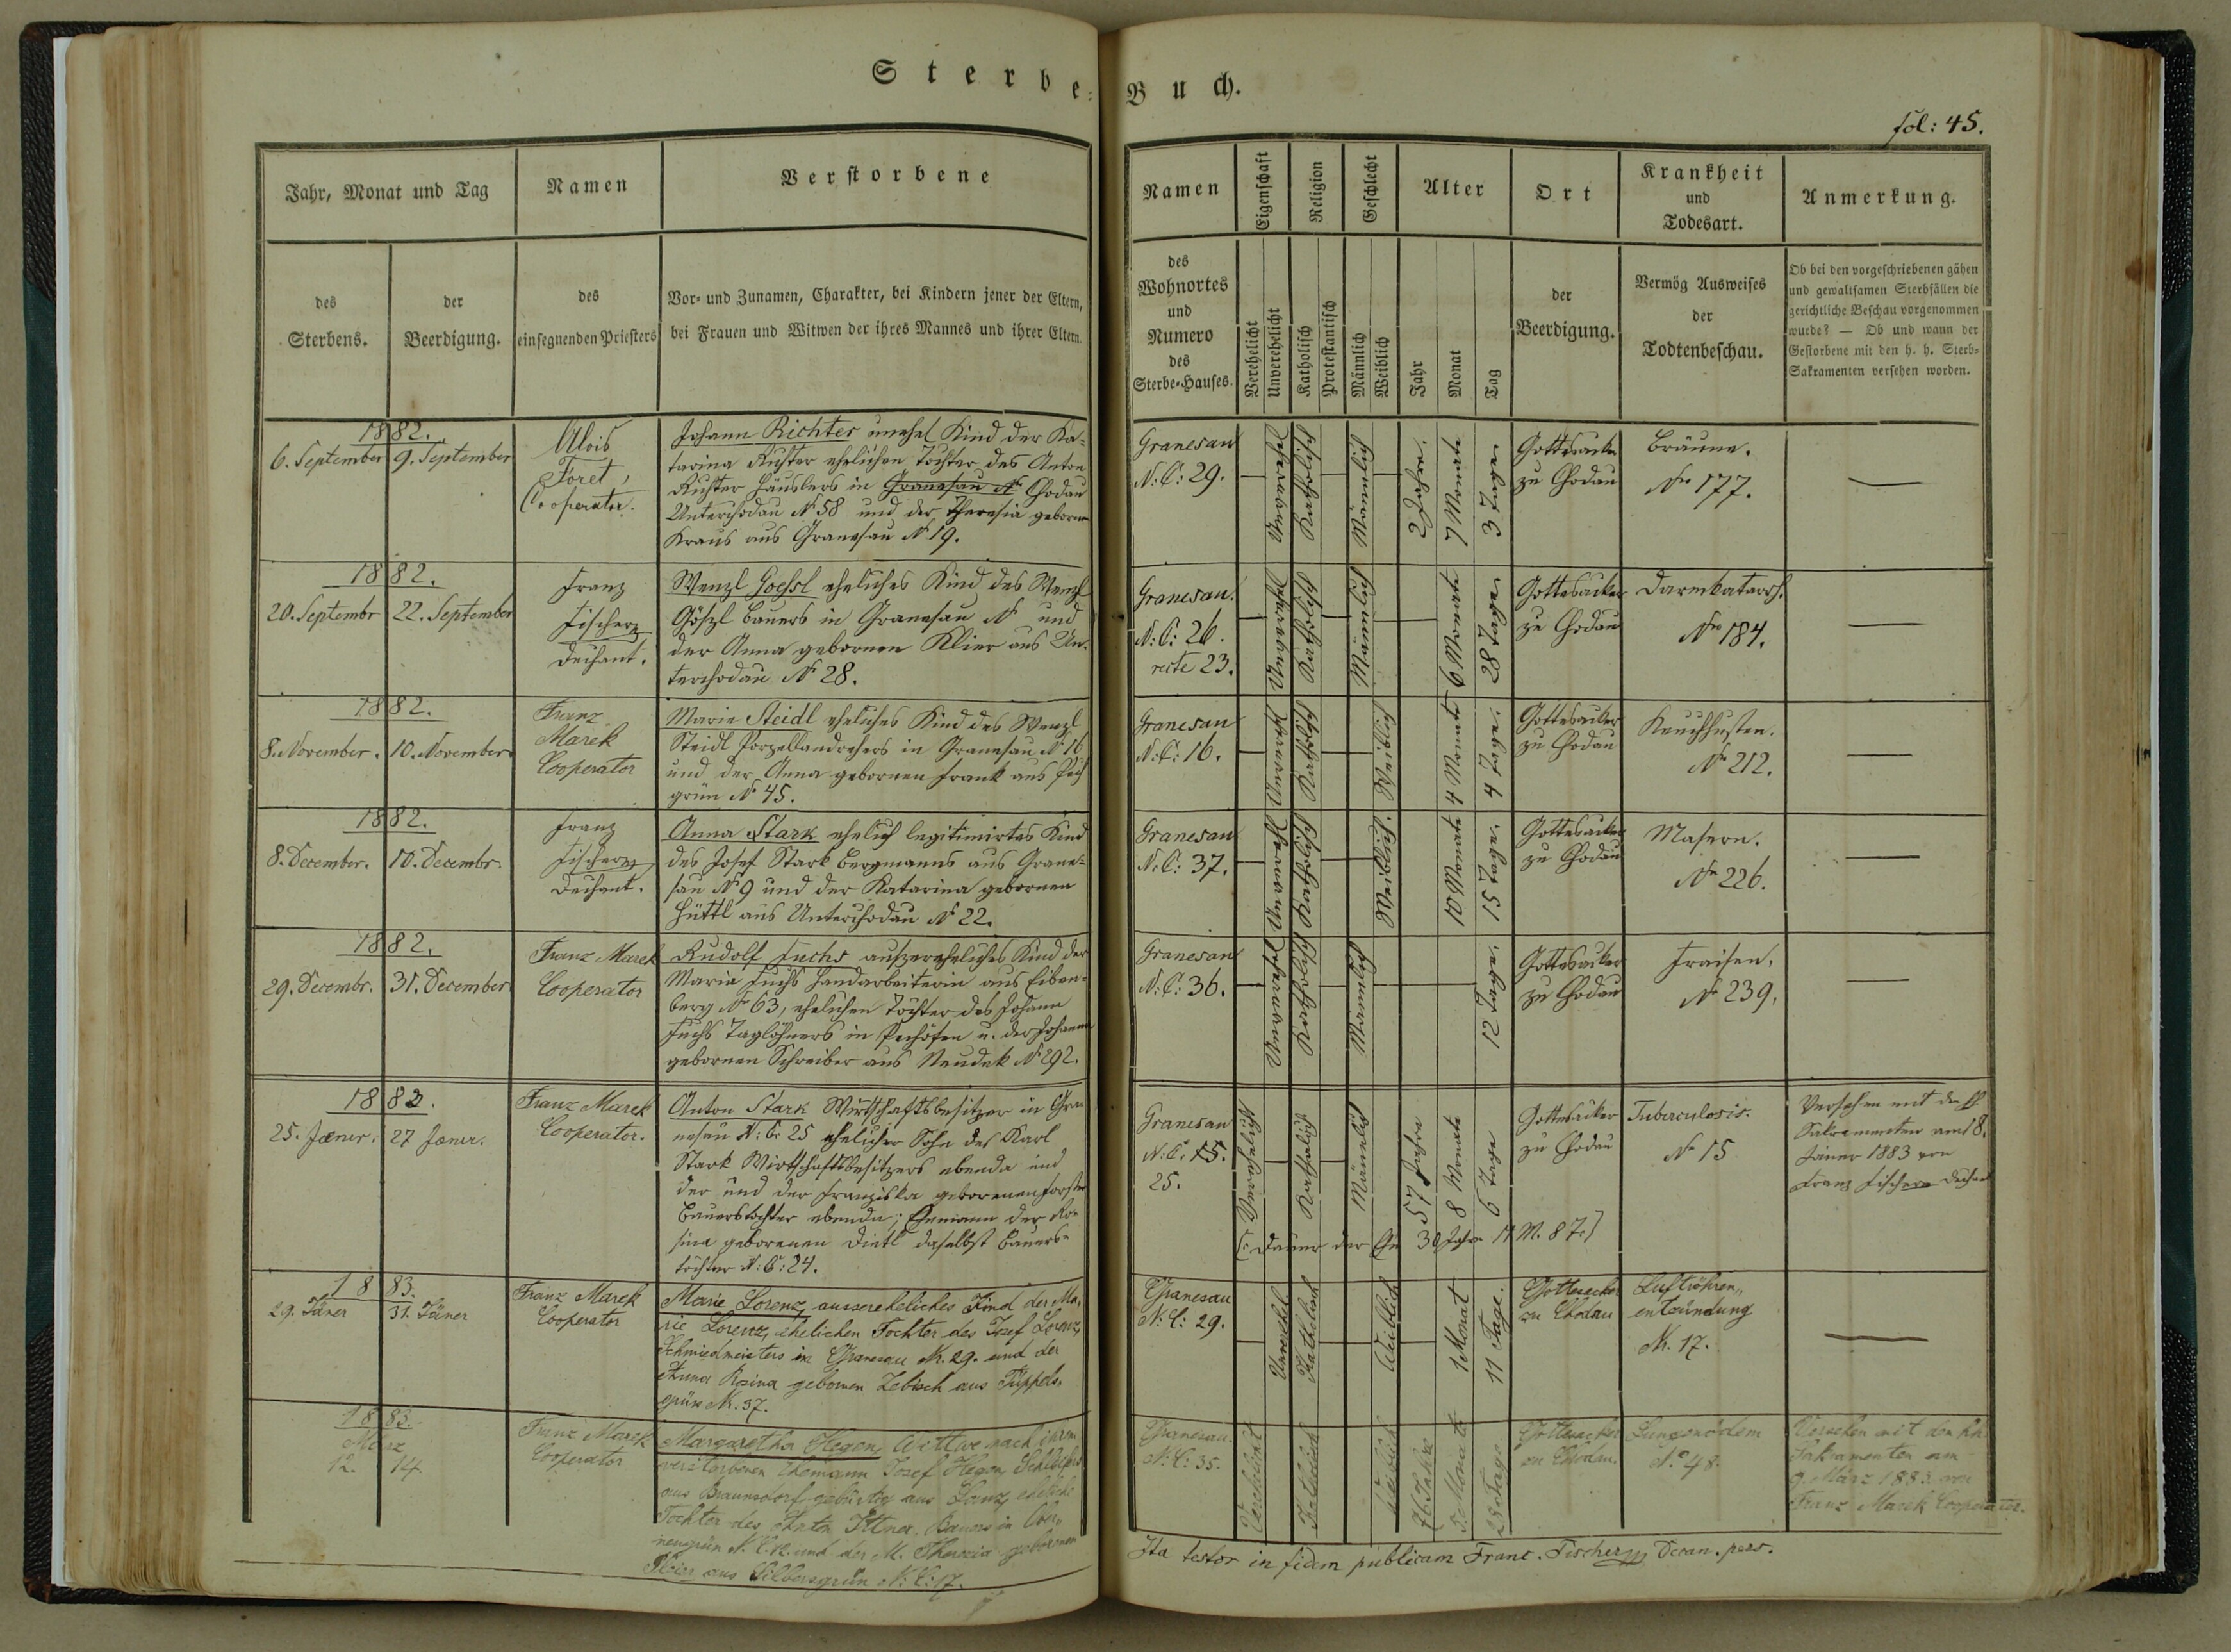 Sterbe-
Jahr, Monat und Tag
Namen
Verstorbene
des
Sterbens.
der
Beerdigung.
des
einsegnenden Priesters
Vor- und Zunamen, Charakter, bei Kindern jener der Eltern,
bei Frauen und Witwen der ihres Mannes und ihrer Eltern.
1882.
6. September
9. September
Alois
Foret,
Cooperator.
Johann Richter unehel Kind der Ka-
tarina Richter ehelichen Tochter des Anton
Richter Häuslers in Granesau N Chodau
Unterchodau N 58 und der Theresia gebornen
Kraus aus Granesau N 19.
1882.
20. Septembr
22. September
Franz
Fischer
Dechant.
Wenzl Goessl eheliches Kind des Wenzl
Göszl Bauers in Granesau N und
der Anna gebornen Klier aus Un-
terchodau N 28.
1882.
8. November.
10. November.
Franz
Marek
Cooperator
Marie Steidl eheliches Kind des Wenzl
Steidl Porzellandrehers in Granesau N 16
und der Anna gebornen Frank aus Pech
grün N 45.
1882.
8. December.
10. Decembr.
Franz
Fischer
Dechant.
Anna Stark ehelich legitimirtes Kind
des Josef Stark Bergmanns aus Grane-
sau N 9 und der Katarina gebornen
Hüttl aus Unterchodau N 22.
1882.
29. Decembr.
31. December.
Franz Marek
Cooperator
Rudolf Fuchs auszereheliches Kind der
Maria Fuchs Handarbeiterin aus Eiben-
berg N 63, ehelichen Tochter des Johann
Fuchs Taglöhners in Pechöfen u. der Johanna
gebornen Schreiber aus Neudek N 292.
1883.
25. Jæner.
27 Jæner.
Franz Marek
Cooperator.
Anton Stark Wirthschaftsbesitzer in Gra
nesau N: C. 25 ehelicher Sohn des Karl
Stark Wirthschaftsbesitzers ebenda und
der und der Franziska geborenen Forster
Bauerstochter ebenda; Ehemann der Ro-
sina geborenen Dietl daselbst Bauers-
tochter N: C: 24.
1883.
29. Jäner
31. Jäner
Franz Marek
Cooperator
Marie Lorenz, aussereheliches Kind der Ma-
rie Lorenz, ehelichen Tochter des Josef Lorenz,
Schmiedmeisters in Granesau Nr. 29. und der
Anna Rosina gebornen Zebisch aus Tüppels-
grün Nr. 37.
1883.
März
12.
14.
Franz Marek
Cooperator
Margaretha Hegen, Wittwe nach ihrem
verstorbenen Ehemann Josef Hegen,
aus Braunsdorf, gebürtig aus Lanz, eheliche
Tochter des Anton Bauers in
N. C. und der M. Theresia gebornen
aus Silbersgrün N: C: 17.
Buch.
fol: 45.
Namen
Eigenschaft
Religion
Geschlecht
Alter
Ort
Krankheit
und
Todesart.
Anmerkung.
des
Wohnortes
und
Numero
des
Sterbe-Hauses.
Verehelicht
Unverehelicht
Katholisch
Protestantisch
Männlich
Weiblich
Jahr
Monat
Tag
der
Beerdigung.
Vermög Ausweises
der
Todtenbeschau.
Ob bei den vorgeschriebenen gähen
und gewaltsamen Sterbfällen die
gerichtliche Beschau vorgenommen
wurde? — Ob und wann der
Gestorbene mit den h. h. Sterb-
Sakramenten versehen worden.
Granesau
N: C: 29.
Unverehel
Katholisch
Männlich
2 Jahre.
7 Monate
3 Tage.
Gottesacker
zu Chodau
Bräune.
Nr 177.
—
Granesau.
N: C: 26.
recte 23.
Unverehel
Katholisch
Männlich
6 Monate
28 Tage.
Gottesacker
zu Chodau
Darmkatarrh.
Nr 184.
—
Granesau
N: C: 16.
Unverehl
Katholisch
Weiblich
4 Monate
4 Tage.
Gottesacker
zu Chodau
Keuchhusten.
Nr 212.
—
Granesau
N: C: 37.
Unverehl
Katholisch
Weiblich.
10 Monate
15 Tage.
Gottesacker
zu Chodau
Masern.
Nr 226.
—
Granesau
N: C: 36.
Unverehel
Katholisch
Männlich
12 Tage.
Gottesacker
zu Chodau
Fraisen.
Nr 239.
—
Granesau
N: C: 15.
25.
Verehelicht
Katholisch
Männlich
57 Jahre
8 Monate
6 Tage
Gottesacker
zu Chodau
Tuberculosis.
Nr 15
Versehen mit den hh
Sakramenten am 18.
Jäner 1883 von
Franz Fischer Dechant
(: Dauer der Ehe Jahre 11 M. 8 T:)
Granesau
N: C: 29.
Unverehel.
Katholisch
Weiblich
1 Monat
11 Tage.
Gottesacker
zu Chodau
Luftröhren-
entzündung
Nr. 17.
—
Granesau.
N: C: 35.
Verehelicht
Katholisch
Weiblich
76 Jahre
5 Monate
28 Tage
Gottesacker
zu Chodau.
Lungenödem
N: 48.
Versehen mit den hh.
Sakramenten am
9. März 1883. von
Franz Marek Cooperator.
Ita testor in fidem publicam Franc. Fischer Decan. pers.